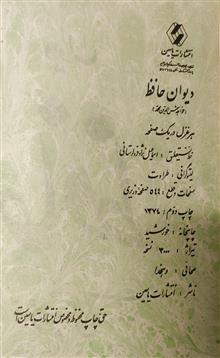 انتشارات یاسین
دیوان حافظ
هر غزل در یک صفحه
خط نستعلیق : اسماعیل نژاد فرد لرستانی
لیتوگرافی : طراوت
صفحات و قطع : ۵۴۴ صفحه وزیری
چاپ دوم : ۱۳۷۷
چاپخانه : خورشید
تیراژ : ۳۰۰۰ نسخه
صحافی :
ناشر : انتشارات یاسین
حق چاپ محفوظ و مخصوص انتشارات یاسین است